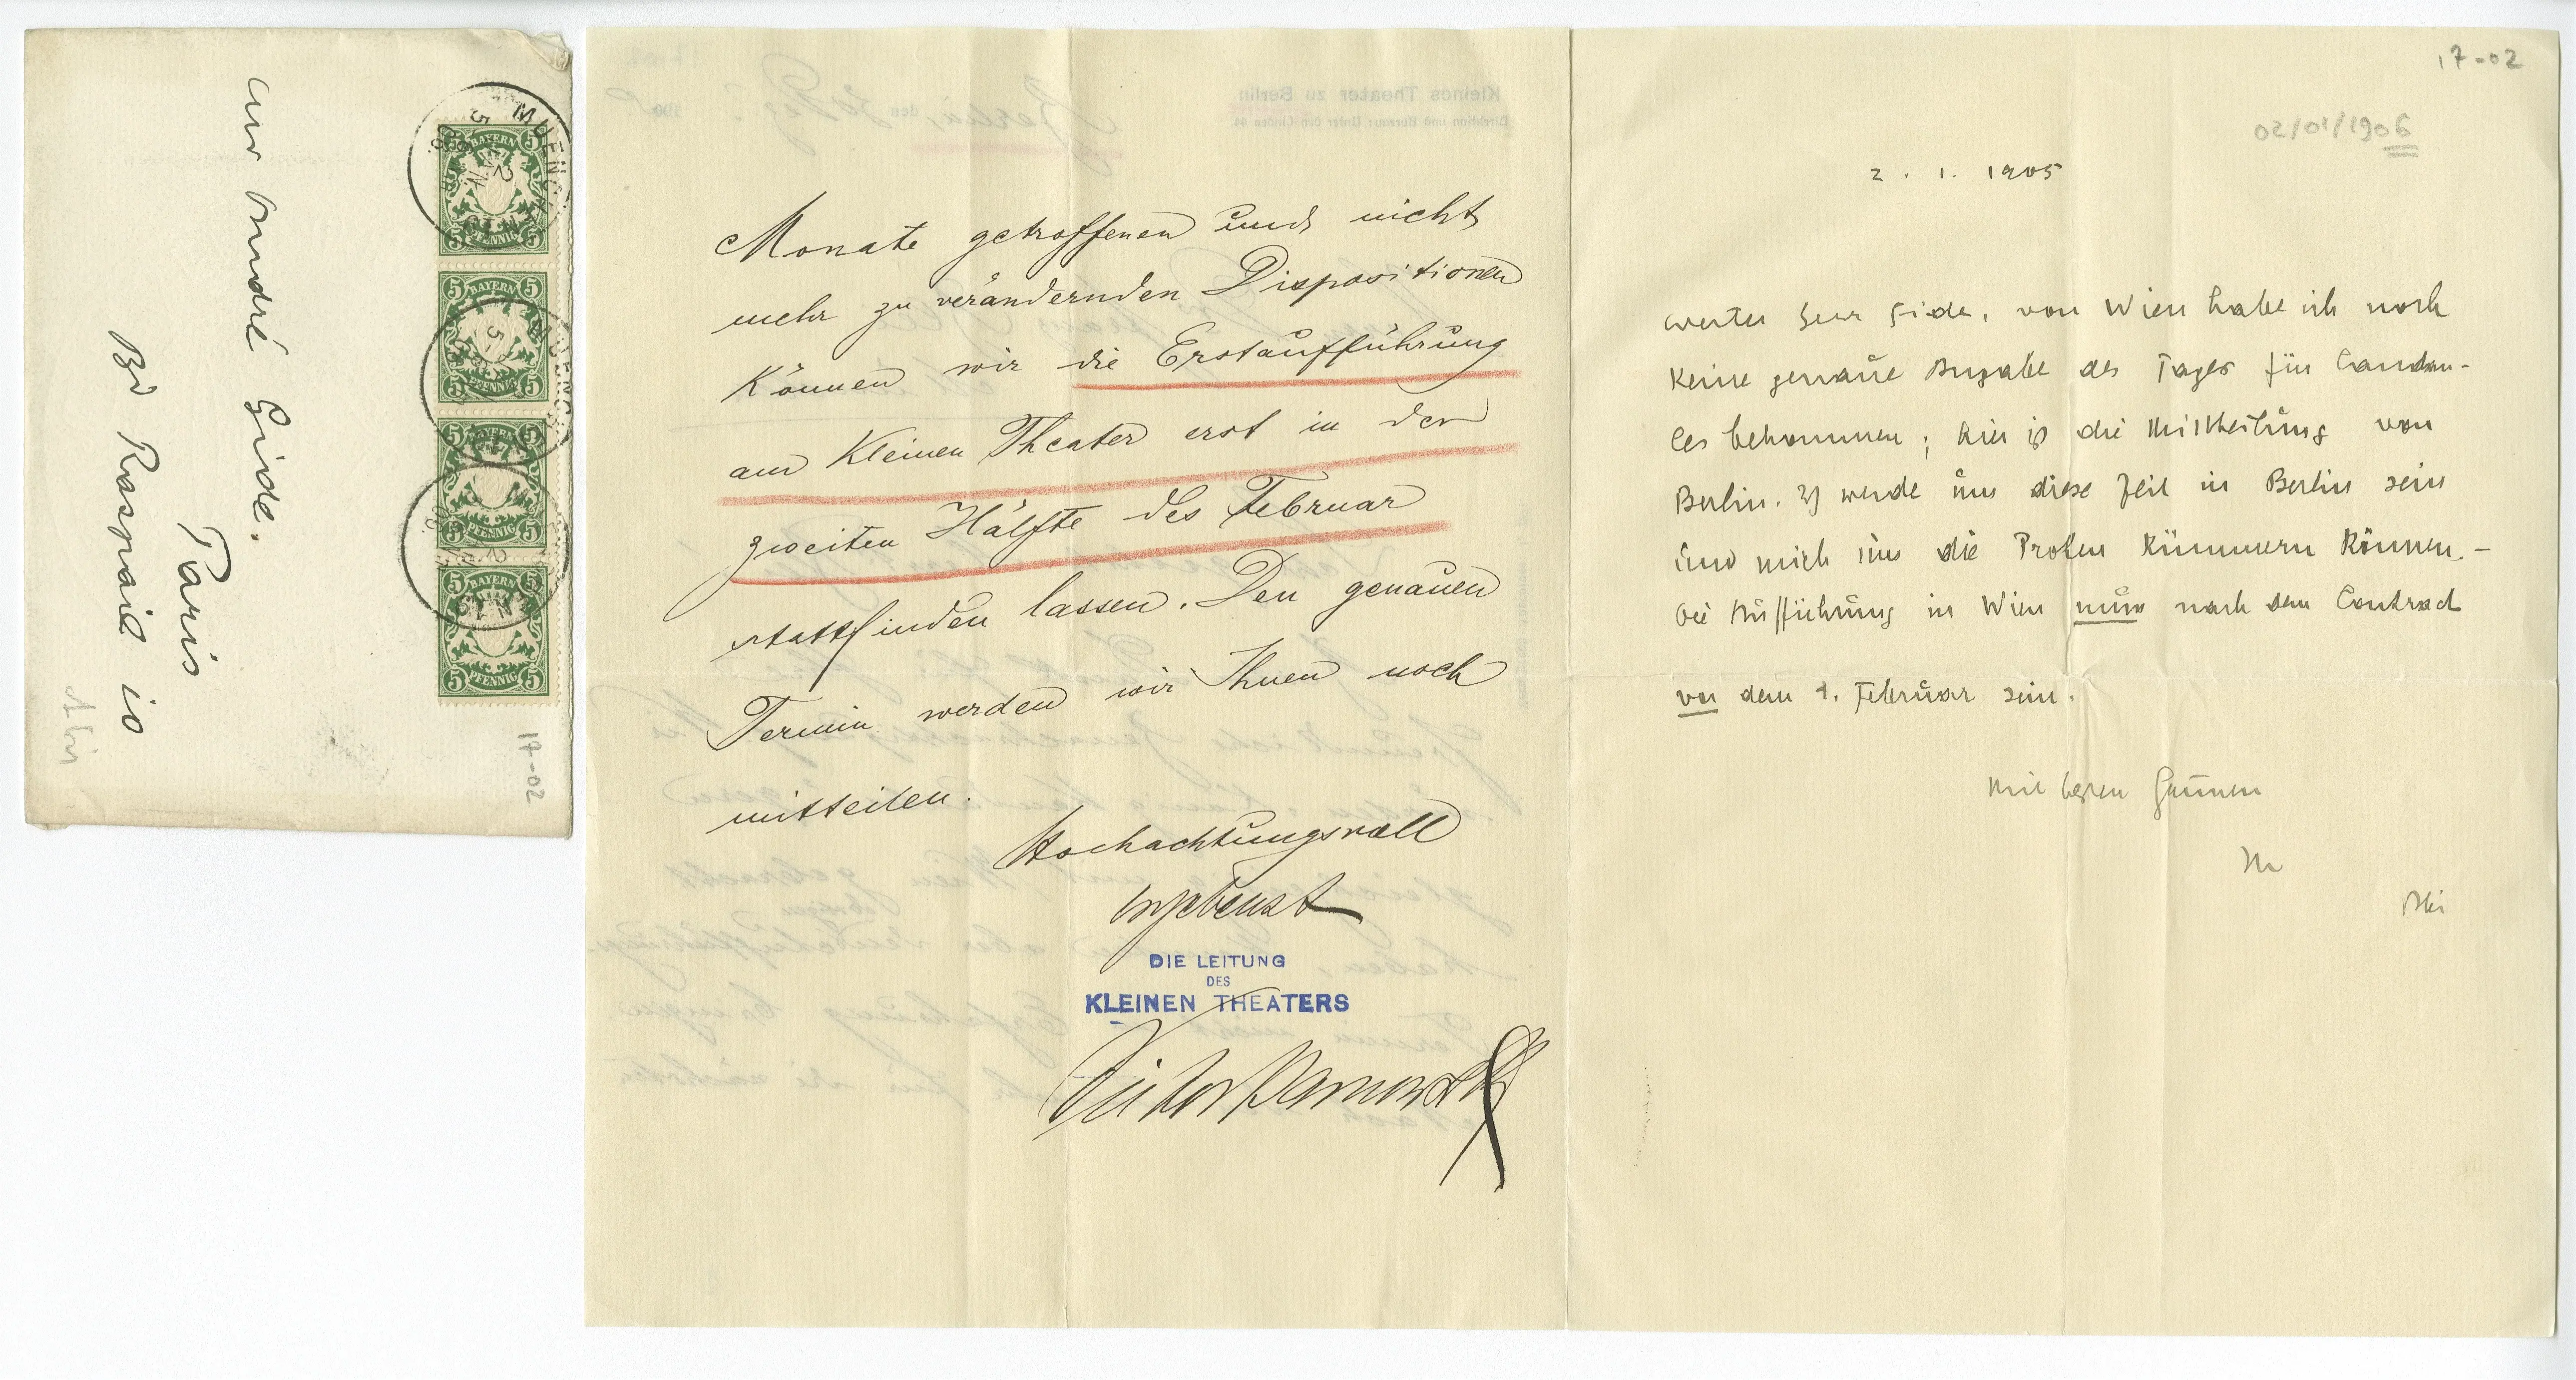 Mr André Gide.
Paris
Bd Raspail 10
17-02
MUENCHEN
BAYERN
5 PFENNIG 5
BAYERN
5 PFENNIG 5
BAYERN
5 PFENNIG 5
BAYERN
5 PFENNIG 5
Kleines Theater zu Berlin
Direktion und Bureau: Unter den Linden 44
Berlin, den 190
Monate getroffenen und nicht
mehr zu verändernden Dispositionen
können wir die Erstaufführung
am Kleinen Theater erst in der
zweiten Hälfte des Februar
stattfinden lassen. Den genauen
Termin werden wir Ihnen noch
mitteilen.
Hochachtungsvoll
ergebenst
DIE LEITUNG
DES
KLEINEN THEATERS
Victor Barnowsky
17-02
02/01/1906
2. 1. 1905
werter Herr Gide, von Wien habe ich noch
keine genaue Angabe des Tages für Candau-
les bekommen; hier ist die Mittheilung von
Berlin. Ich werde um diese Zeit in Berlin sein
und mich um die Proben kümmern können. –
Die Aufführung in Wien muss nach dem Contract
vor dem 1. Februar sein.
Mit besten Grüssen
Ihr